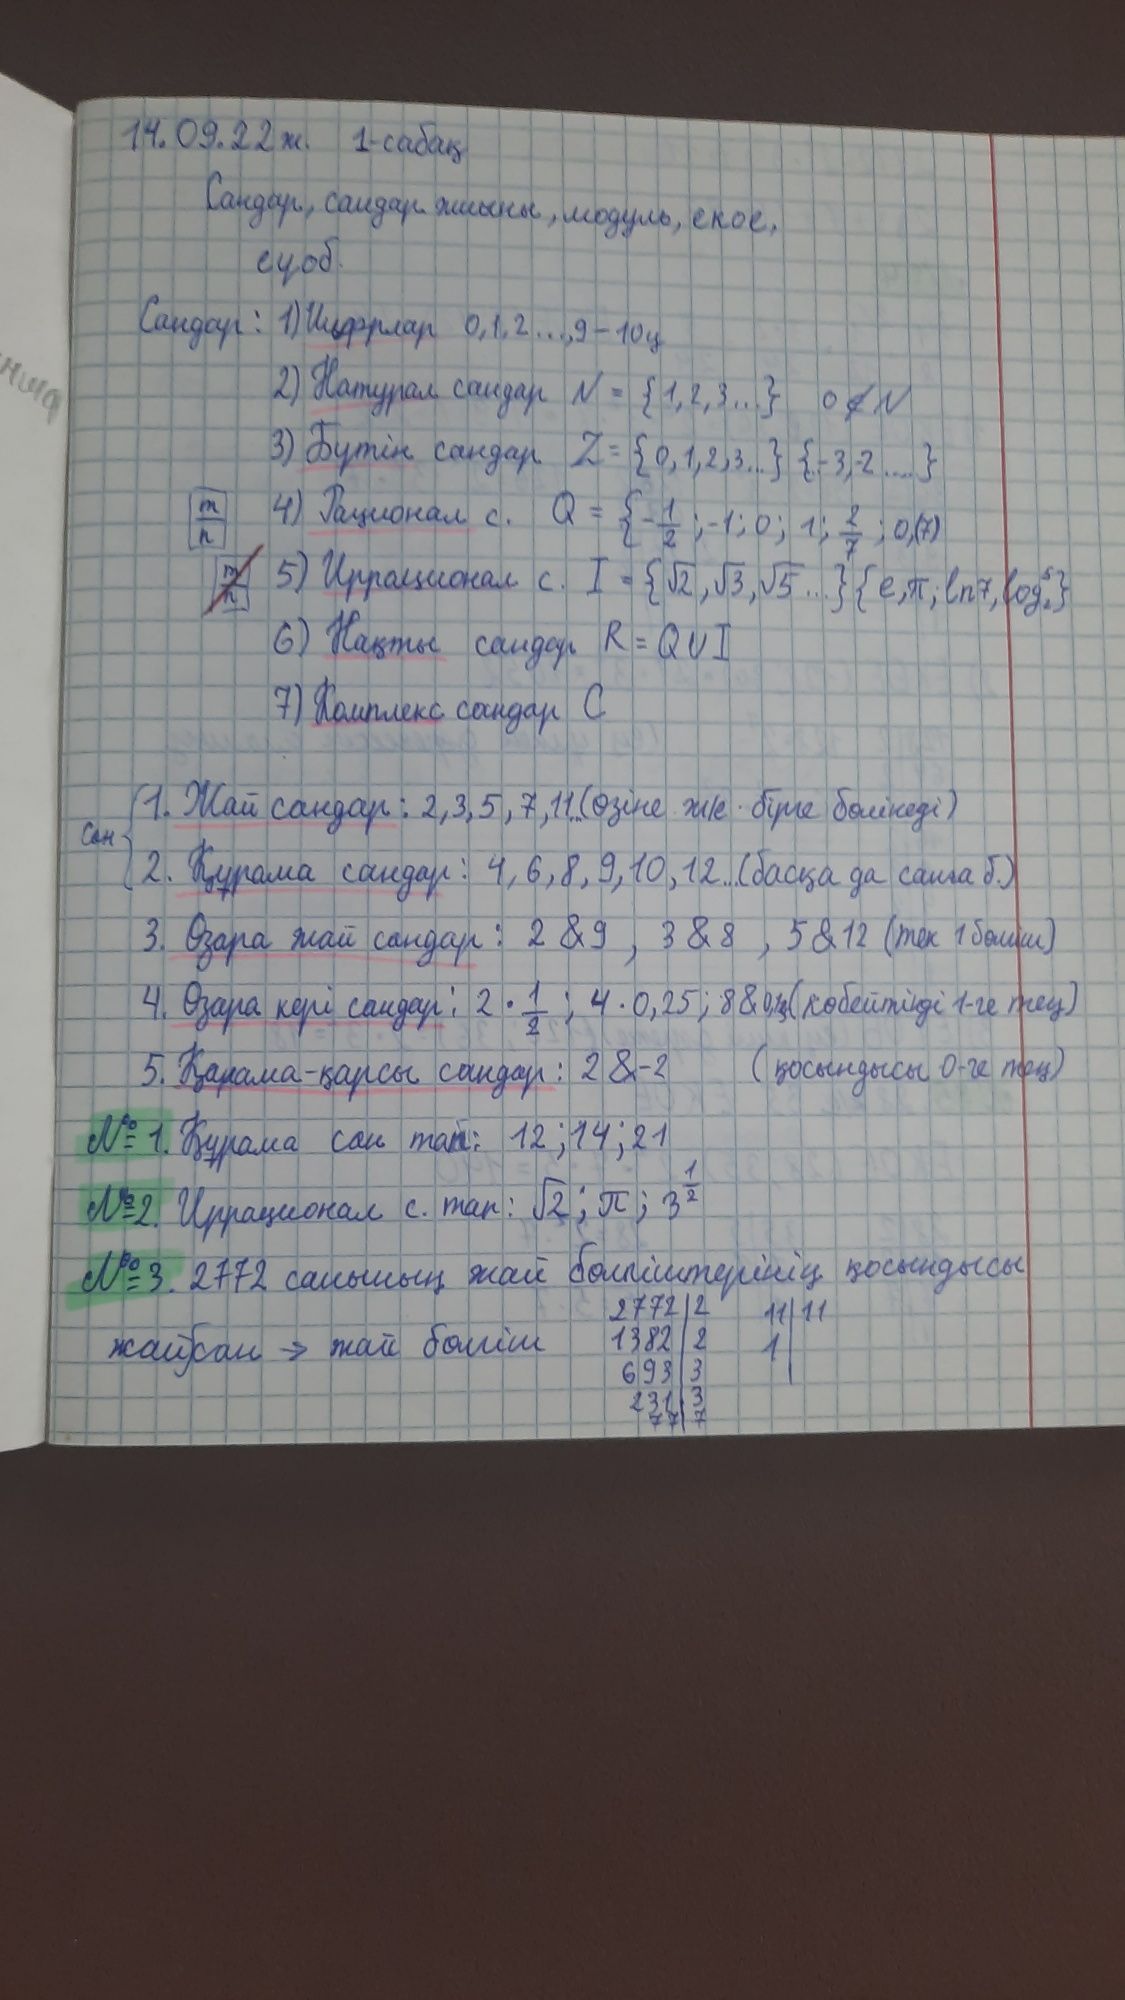 14.09.22ж. 1-сабақ
Сандар, сандар жиыны, модуль, екое,
еүоб.
Сандар: 1) Цифрлар 0,1,2...,9 – 10ц
2) Натурал сандар N = {1,2,3...} 0 ∉ N
3) Бүтін сандар Z = {0,1,2,3...} {-3,-2.....}
m/n 4) Рационал с. Q = {-1/2; -1; 0; 1; 2/7; 0,(7)
m/n 5) Иррационал с. I = {√2, √3, √5...} {e, π, ln7, log₂⁵}
6) Нақты сандар R = Q U I
7) Комплекс сандар C
Сан
1. Жай сандар: 2,3,5,7,11...(өзіне ж/е бірге бөлінеді)
2. Құрама сандар: 4,6,8,9,10,12...(басқа да санға б.)
3. Өзара жай сандар: 2 & 9, 3 & 8, 5 & 12 (тек 1 бөлгіш)
4. Өзара кері сандар: 2 · 1/2; 4 · 0,25; 8 & (көбейтінді 1-ге тең)
5. Қарама-қарсы сандар: 2 & -2 (қосындысы 0-ге тең)
№1. Құрама сан тап: 12; 14; 21
№2. Иррационал с. тап: √2; π; 3^1/2
№3. 2772 санының жай бөлгіштерінің қосындысы
2772|2 11|11
жай сан → жай бөлгіш 1382|2 1|
693|3
231|3
77|7